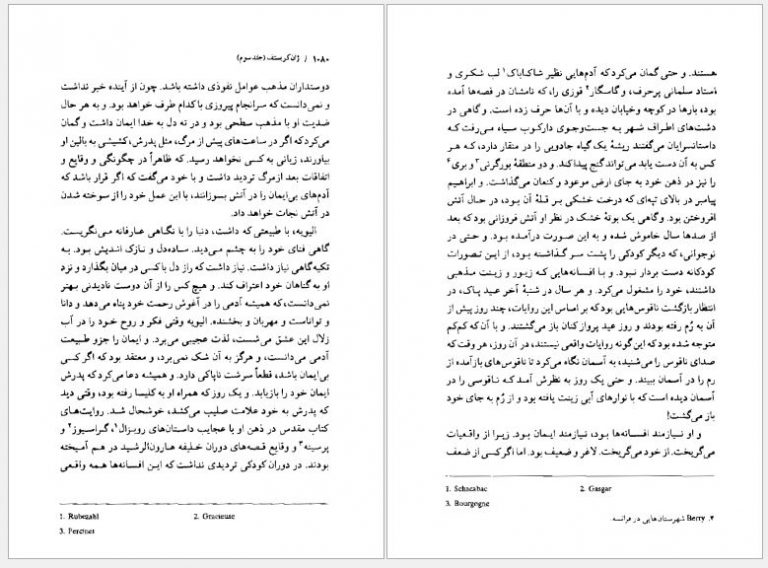 ۱۰۸۰ / ژان کریستف (جلد سوم)
دوستداران مذهب عوامل نفوذی داشته باشد. چون از آینده خبر نداشت
و نمی‌دانست که سرانجام پیروزی با کدام طرف خواهد بود. و به هر حال
ضدیت او با مذهب سطحی بود و در ته دل به خدا ایمان داشت و گمان
می‌کرد که اگر در ساعت‌های پیش از مرگ، مثل پدرش، کشیشی به بالین او
بیاورند، زیانی به کسی نخواهد رسید. که ظاهراً در چگونگی و وقایع و
اتفاقات بعد از مرگ تردید داشت و با خود می‌گفت که اگر قرار باشد که
آدم‌های بی‌ایمان را در آتش بسوزانند، با این عمل خود را از سوخته شدن
در آتش نجات خواهد داد.
الیویه، با طبیعتی که داشت، دنیا را با نگاهی عارفانه می‌نگریست.
گاهی فنای خود را به چشم می‌دید. ساده‌دل و نازک اندیش بود. به
تکیه‌گاهی نیاز داشت. نیاز داشت که راز دل با کسی در میان بگذارد و نزد
او به گناهان خود اعتراف کند. و هیچ کس را از آن دوست نادیدنی بهتر
نمی‌دانست، که همیشه آدمی را در آغوش رحمت خود پناه می‌دهد و دانا
و تواناست و مهربان و بخشنده. الیویه وقتی فکر و روح خود را در آب
زلال این عشق می‌شست، لذت عجیبی می‌برد. و ایمان را جزو طبیعت
آدمی می‌دانست، و هرگز به آن شک نمی‌برد، و معتقد بود که اگر کسی
بی‌ایمان باشد، قطعاً سرشت ناپاکی دارد. و همیشه دعا می‌کرد که پدرش
ایمان خود را بازیابد. و یک روز که همراه او به کلیسا رفته بود، وقتی دید
که پدرش به خود علامت صلیب می‌کشد، خوشحال شد. روایت‌های
کتاب مقدس در ذهن او با عجایب داستان‌های روبزال¹، گراسیوز² و
پرسینه³ و وقایع قصه‌های دوران خلیفه هارون‌الرشید در هم آمیخته
بودند. در دوران کودکی تردیدی نداشت که این افسانه‌ها همه واقعی
1. Rubezahl 2. Gracieuse
3. Percinet
هستند. و حتی گمان می‌کرد که آدم‌هایی نظیر شاکاباک¹ لب شکری و
استاد سلمانی پرحرف، و گاسگار² قوزی را، که نامشان در قصه‌ها آمده
بود، بارها در کوچه و خیابان دیده و با آن‌ها حرف زده است. و گاهی در
دشت‌های اطراف شهر به جست‌وجوی دارکوب سیاه می‌رفت که
داستانسرایان می‌گفتند ریشهٔ یک گیاه جادویی را در منقار دارد، که هر
کس به آن دست یابد می‌تواند گنج پیدا کند. و دو منطقهٔ بورگونی³ و بری⁴
را نیز در ذهن خود به جای ارض موعود و کنعان می‌گذاشت. و ابراهیم
پیامبر در بالای تپه‌ای که درخت خشکی بر قلهٔ آن بود، در حال آتش
افروختن بود. و گاهی یک بوتهٔ خشک در نظر او آتش فروزانی بود که بعد
از صدها سال خاموش شده و به این صورت درآمده بود. و حتی در
نوجوانی، که دیگر کودکی را پشت سر گذاشته بود، از این تصورات
کودکانه دست بردار نبود. و با افسانه‌هایی که زیور و زینت مذهبی
داشتند، خود را مشغول می‌کرد. و هر سال در شنبهٔ آخر عید پاک، در
انتظار بازگشت ناقوس‌هایی بود که بر اساس این روایات، چند روز پیش از
آن به رُم رفته بودند و روز عید پرواز کنان باز می‌گشتند. و با آن که کم‌کم
متوجه شده بود که این گونه روایات واقعی نیستند، در آن روز، هر وقت که
صدای ناقوس را می‌شنید، به آسمان نگاه می‌کرد تا ناقوس‌های بازآمده از
رم را در آسمان ببیند. و حتی یک روز به نظرش آمد که ناقوسی را در
آسمان دیده است که با نوارهای آبی زینت یافته بود و از رُم به جای خود
باز می‌گشت!
و او نیازمند افسانه‌ها بود، نیازمند ایمان بود. زیرا از واقعیات
می‌گریخت. از خود می‌گریخت. لاغر و ضعیف بود. اما اگر کسی از ضعف
1. Schacabac 2. Gasgar
3. Bourgogne
۴. Berry شهرستان‌هایی در فرانسه.